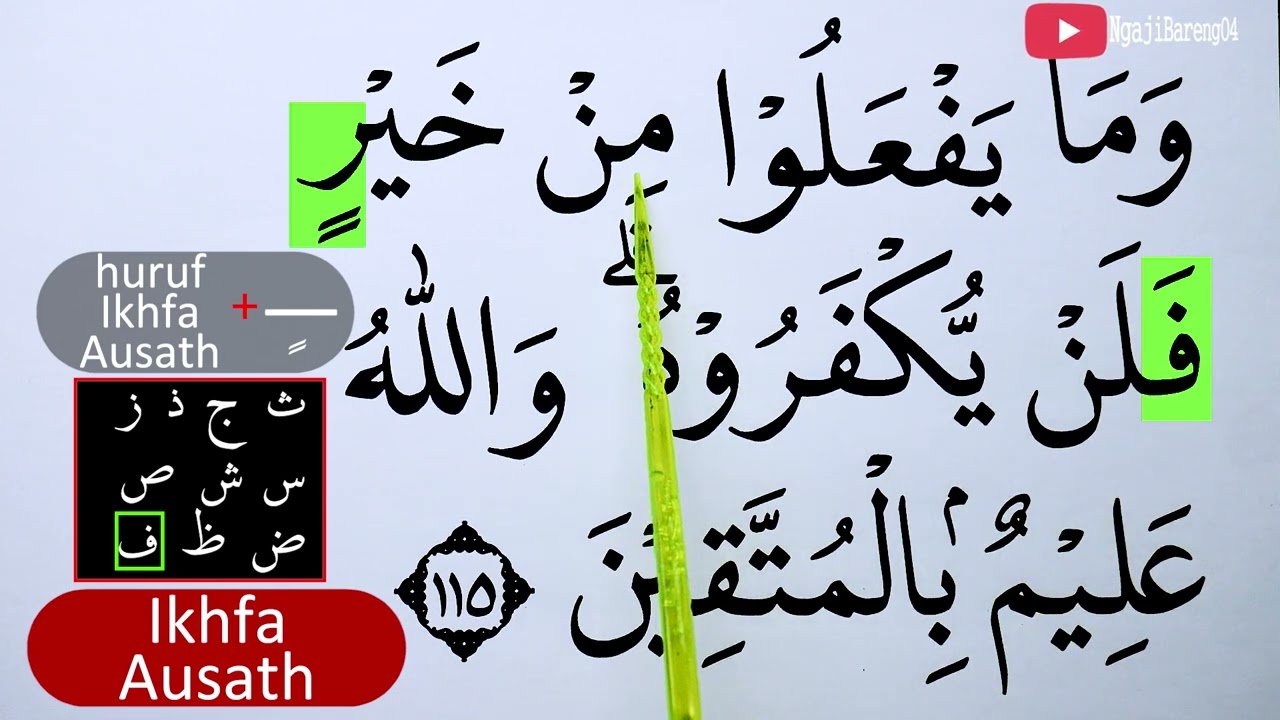 NgajiBareng04
وَمَا يَفْعَلُوْا مِنْ خَيْرٍ
فَلَنْ يُّكْفَرُوْهُ ۗ وَاللّٰهُ
عَلِيْمٌۢ بِالْمُتَّقِيْنَ ١١٥
huruf
Ikhfa
Ausath
+ ـــٍ
ث ج ذ ز
س ش ص
ض ظ ف
Ikhfa
Ausath